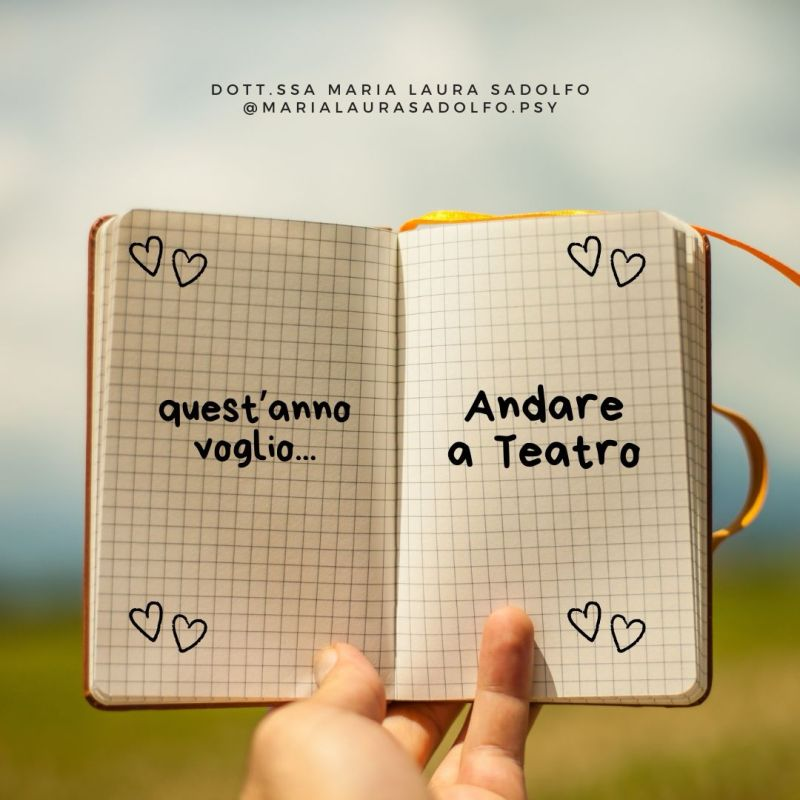 DOTT.SSA MARIA LAURA SADOLFO
@MARIALAURASADOLFO.PSY
quest'anno
voglio...
Andare
a Teatro